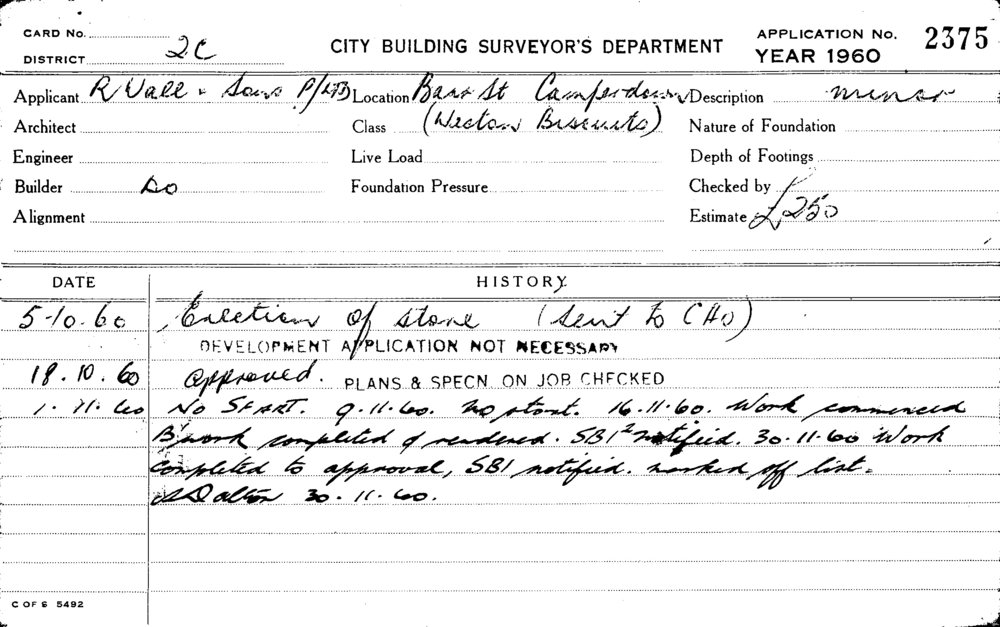 CARD No. CITY BUILDING SURVEYOR'S DEPARTMENT APPLICATION No. 2375
DISTRICT 2C YEAR 1960
Applicant R Wall & Sons P/LTD Location Barr St Camperdown Description minor
Architect Class (Westons Biscuits) Nature of Foundation
Engineer Live Load Depth of Footings
Builder do Foundation Pressure Checked by
Alignment Estimate £250
DATE HISTORY
5-10.60 Erection of store (Sent to CHO)
DEVELOPMENT APPLICATION NOT NECESSARY
18.10.60 Approved. PLANS & SPECN. ON JOB CHECKED
1.11.60 No START. 9.11.60. No start. 16.11.60. Work commenced
B'work completed & rendered. SBI notified. 30.11.60 Work
completed to approval, SBI notified. marked off list.
Dalton 30.11.60.
C OF S 5492